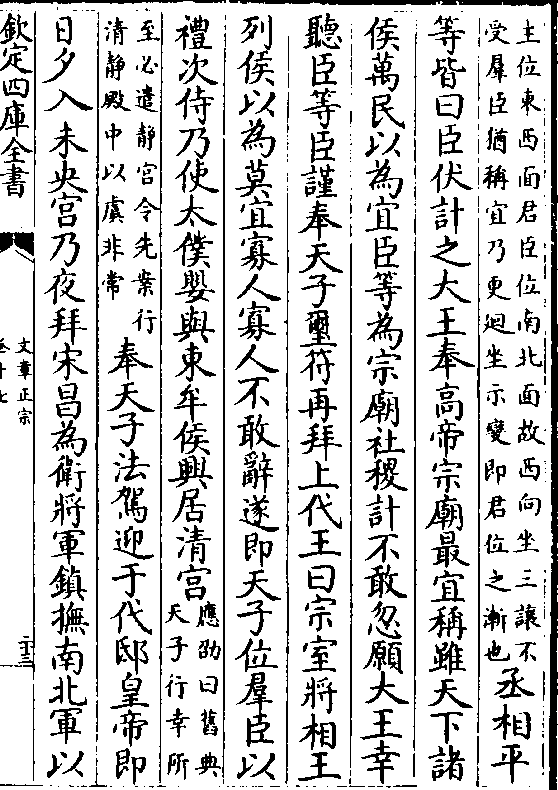 主位東西面君臣位南北面故西向坐三讓不
受羣臣猶稱宜乃更廻坐示變即君位之漸也
丞相平
等皆曰臣伏計之大王奉高帝宗廟最宜稱雖天下諸
侯萬民以為宜臣等為宗廟社稷計不敢忽願大王幸
聽臣等臣謹奉天子璽符再拜上代王曰宗室將相王
列侯以為莫宜寡人寡人不敢辭遂即天子位羣臣以
禮次侍乃使太僕嬰與東牟侯興居清宫
應劭曰舊典
天子行幸所
至必遣静宫令先案行
清静殿中以虞非常
奉天子法駕迎于代邸皇帝即
日夕入未央宫乃夜拜宋昌為衛將軍鎮撫南北軍以
欽定四庫全書
文章正宗
卷十七
二十三